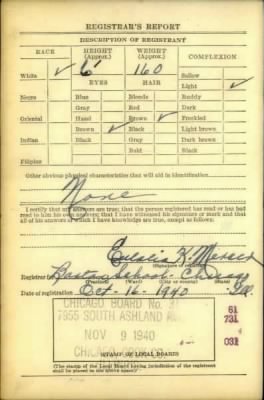 REGISTRAR'S REPORT
DESCRIPTION OF REGISTRANT
RACE HEIGHT (Approx.) WEIGHT (Approx.) COMPLEXION
White ✓ 6' 160 Sallow
EYES HAIR Light ✓
Negro Blue Blonde Ruddy
Gray Red Dark
Oriental Hazel Brown ✓ Freckled
Brown ✓ Black Light brown
Indian Black Gray Dark brown
Bald Black
Filipino
Other obvious physical characteristics that will aid in identification
None
I certify that my answers are true; that the person registered has read or has had
read to him his own answers; that I have witnessed his signature or mark and that
all of his answers of which I have knowledge are true, except as follows:
Eulalia K.
(Signature of registrar)
Registrar for School Chicago Ill
(Precinct) (Ward) (City or county) (State)
Date of registration Oct-16-1940
CHICAGO BOARD No. 31
7955 SOUTH ASHLAND AVE
NOV 9 1940
CHICAGO
61
731
031
STAMP OF LOCAL BOARD
(The stamp of the Local Board having jurisdiction of the registrant
shall be placed in the above space)